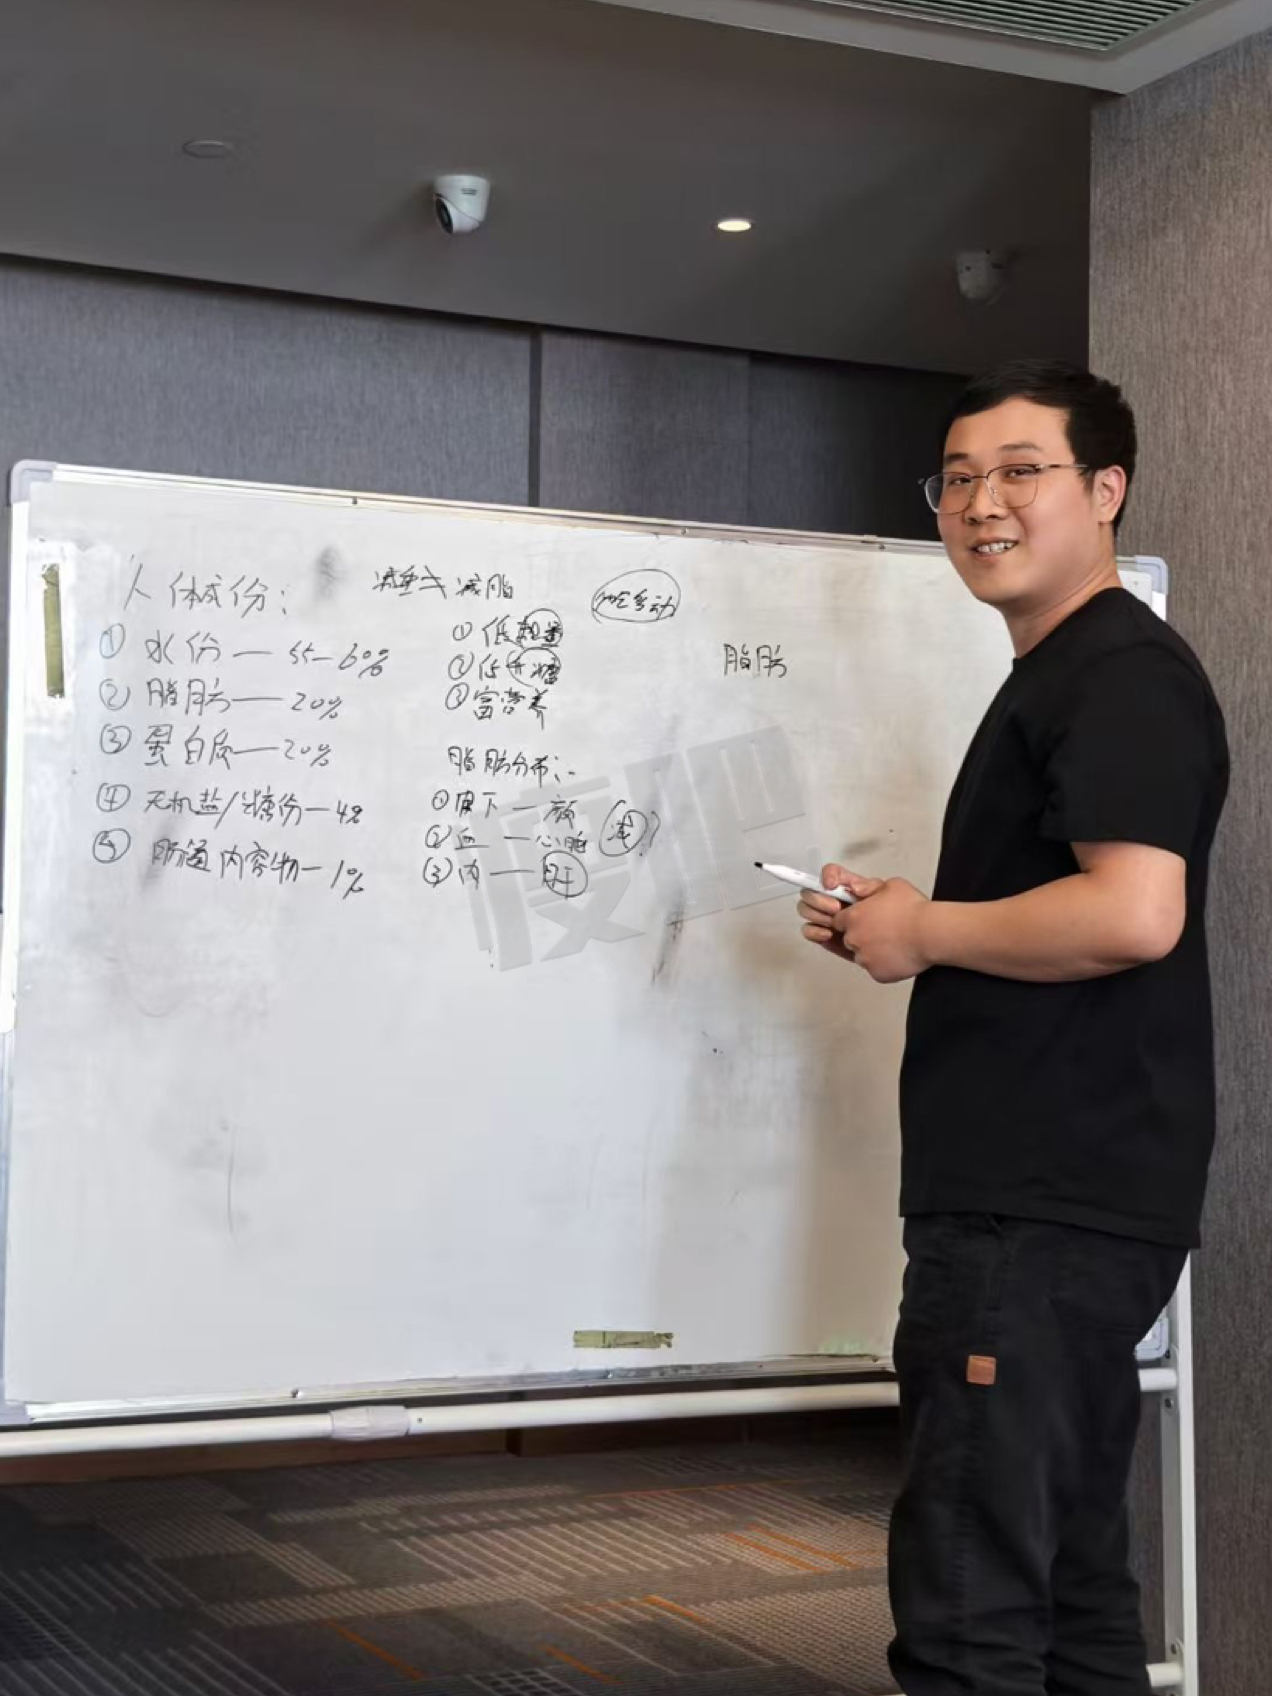 人体成份：
① 水份 — 55—60%
② 脂肪 — 20%
③ 蛋白质 — 20%
④ 无机盐/糖份 — 4%
⑤ 肠道内容物 — 1%
减重 减脂
① 低热量
② 低升糖
③ 富营养
脂肪分布：
① 皮下 —
② 血 — 心脑
③ 内 — 肝
减？
脂肪
瘦吧